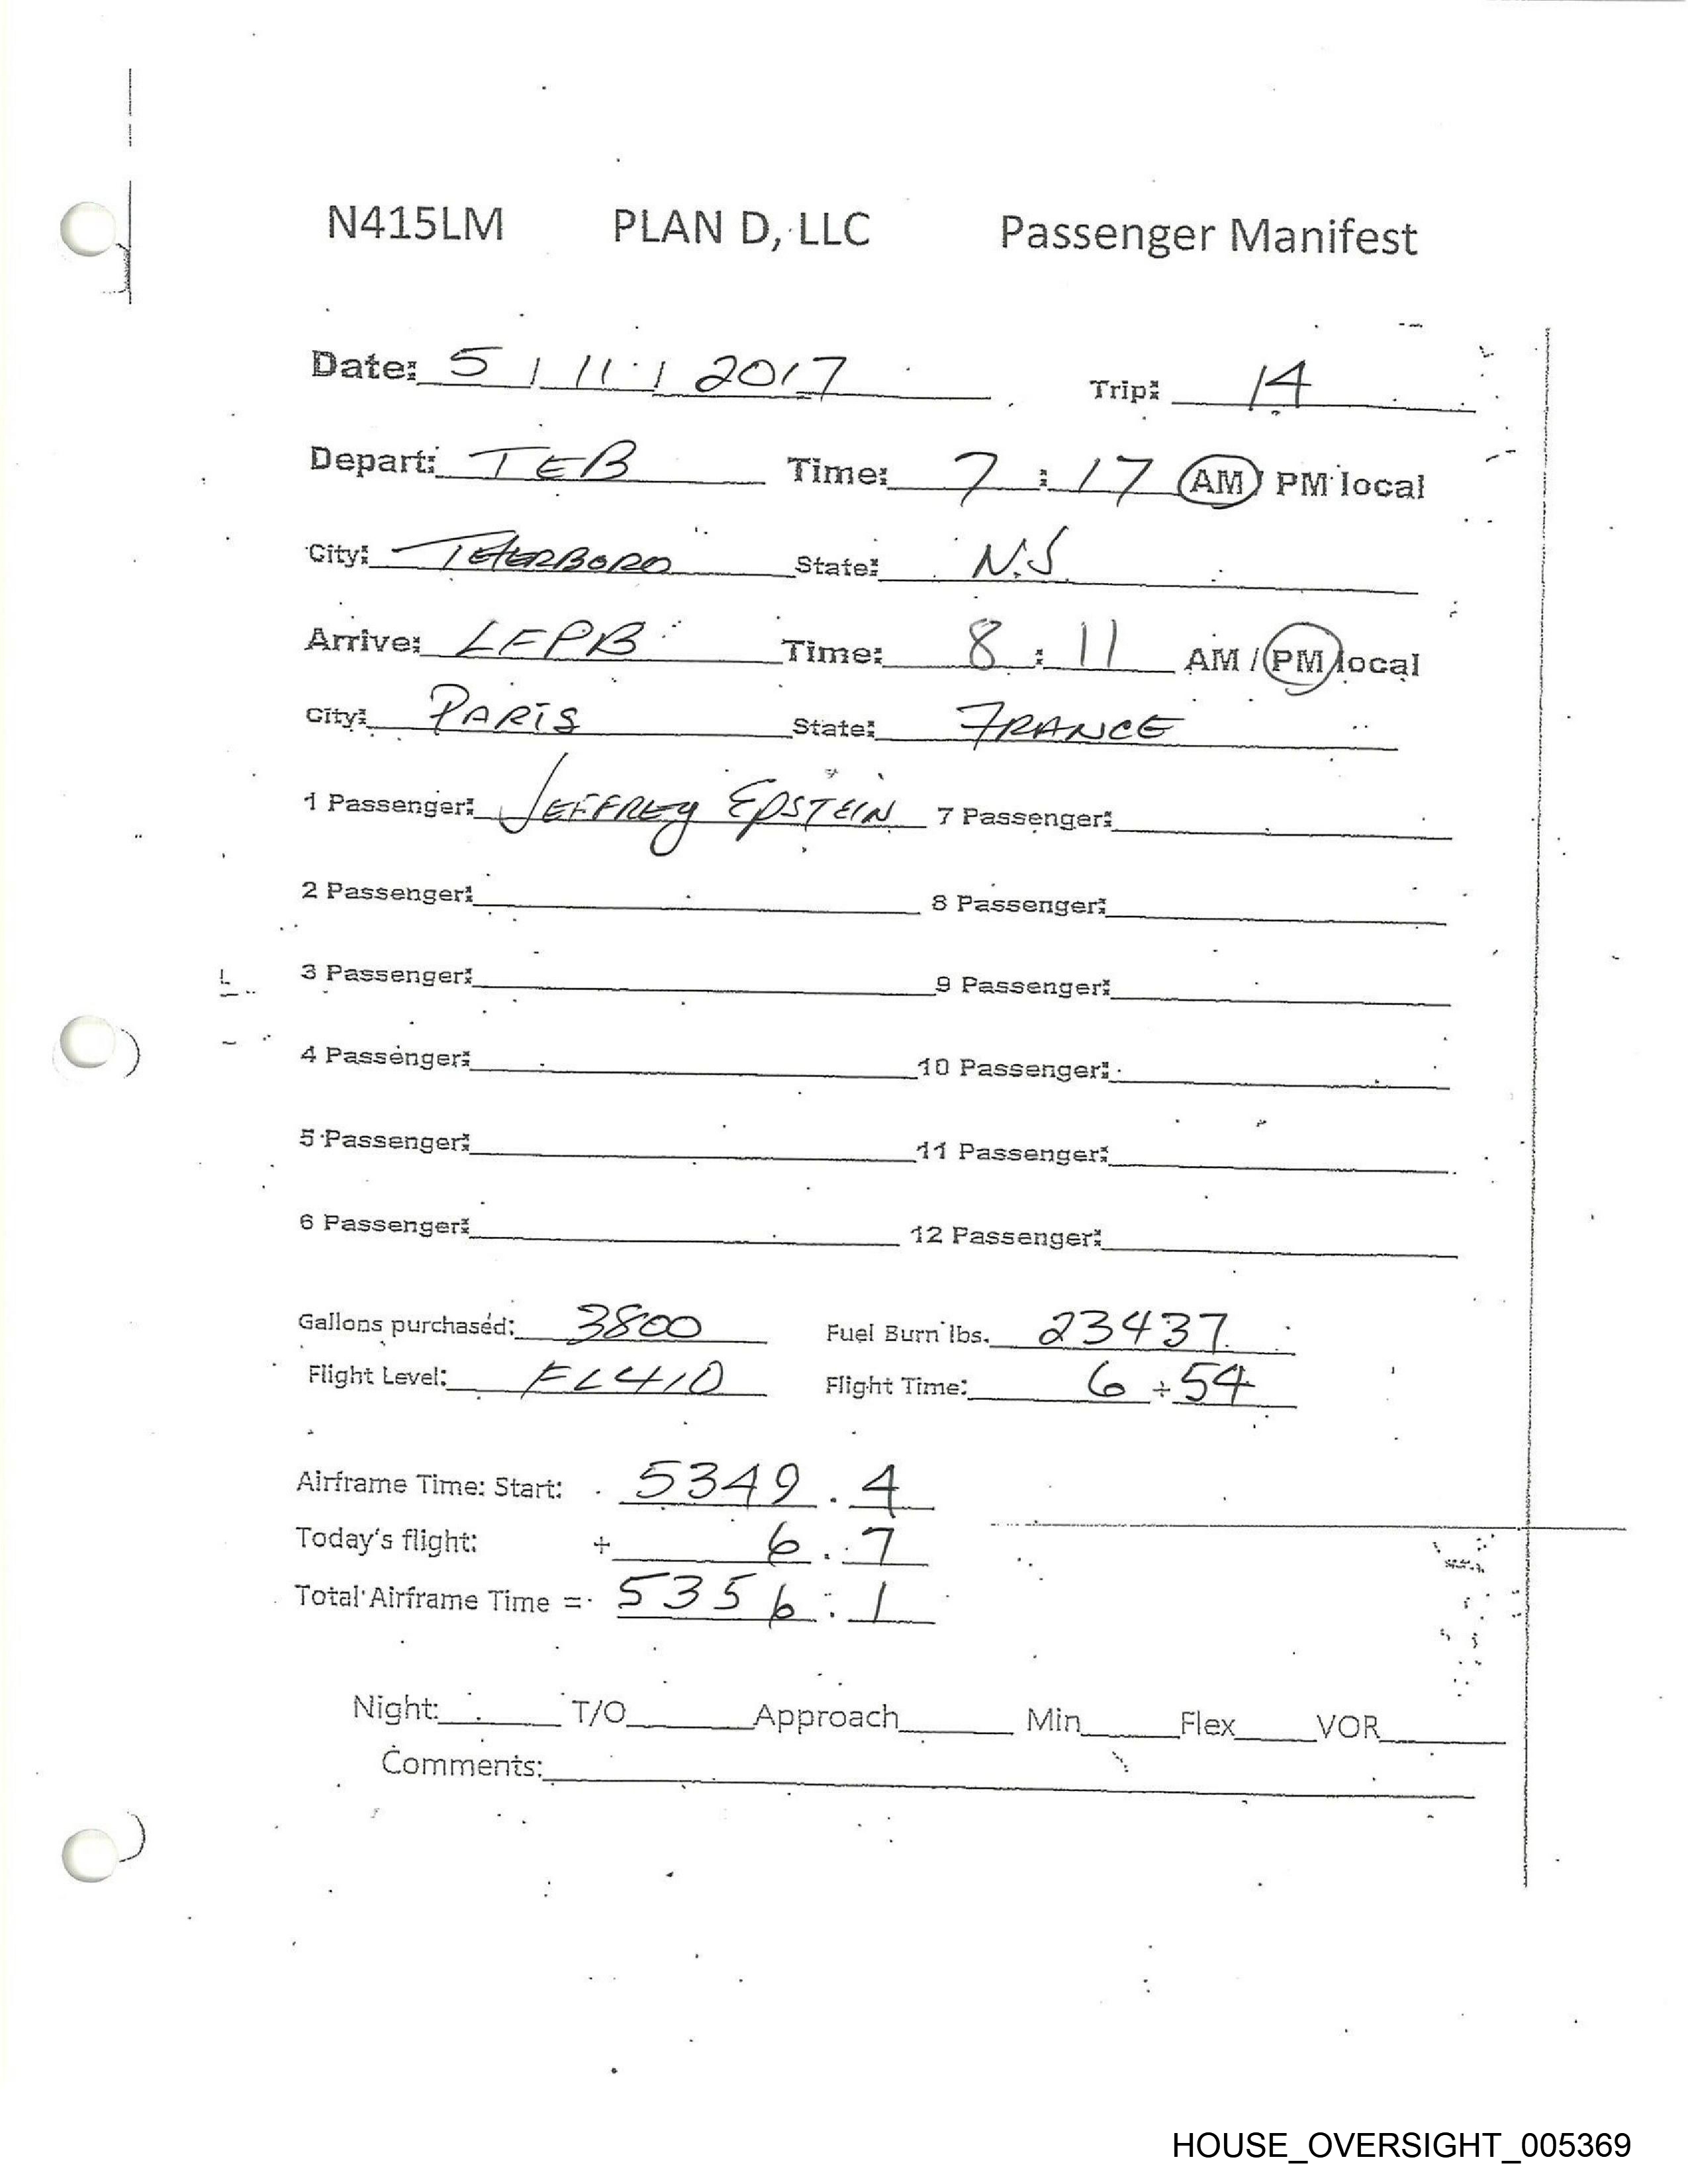 N415LM PLAN D, LLC Passenger Manifest
Date: 5 / 11 / 2017 Trip: 14
Depart: TEB Time: 7 : 17 AM / PM local
City: TETERBORO State: N.J
Arrive: LFPB Time: 8 : 11 AM / PM local
City: PARIS State: FRANCE
1 Passenger: JEFFREY EPSTEIN 7 Passenger:
2 Passenger: 8 Passenger:
3 Passenger: 9 Passenger:
4 Passenger: 10 Passenger:
5 Passenger: 11 Passenger:
6 Passenger: 12 Passenger:
Gallons purchased: 3800 Fuel Burn lbs. 23437
Flight Level: FL410 Flight Time: 6 + 54
Airframe Time: Start: 5349 . 4
Today's flight: + 6 . 7
Total Airframe Time = 5356 . 1
Night: T/O Approach Min Flex VOR
Comments:
HOUSE_OVERSIGHT_005369